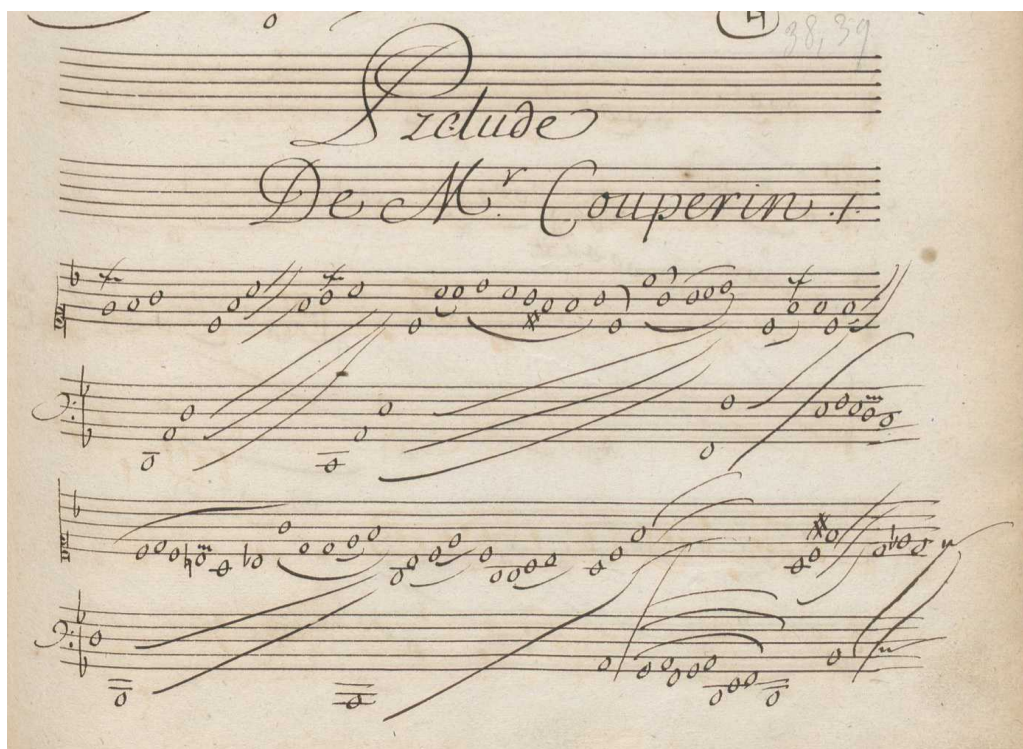 4
38, 39
Prelude
De Mr. Couperin ./.